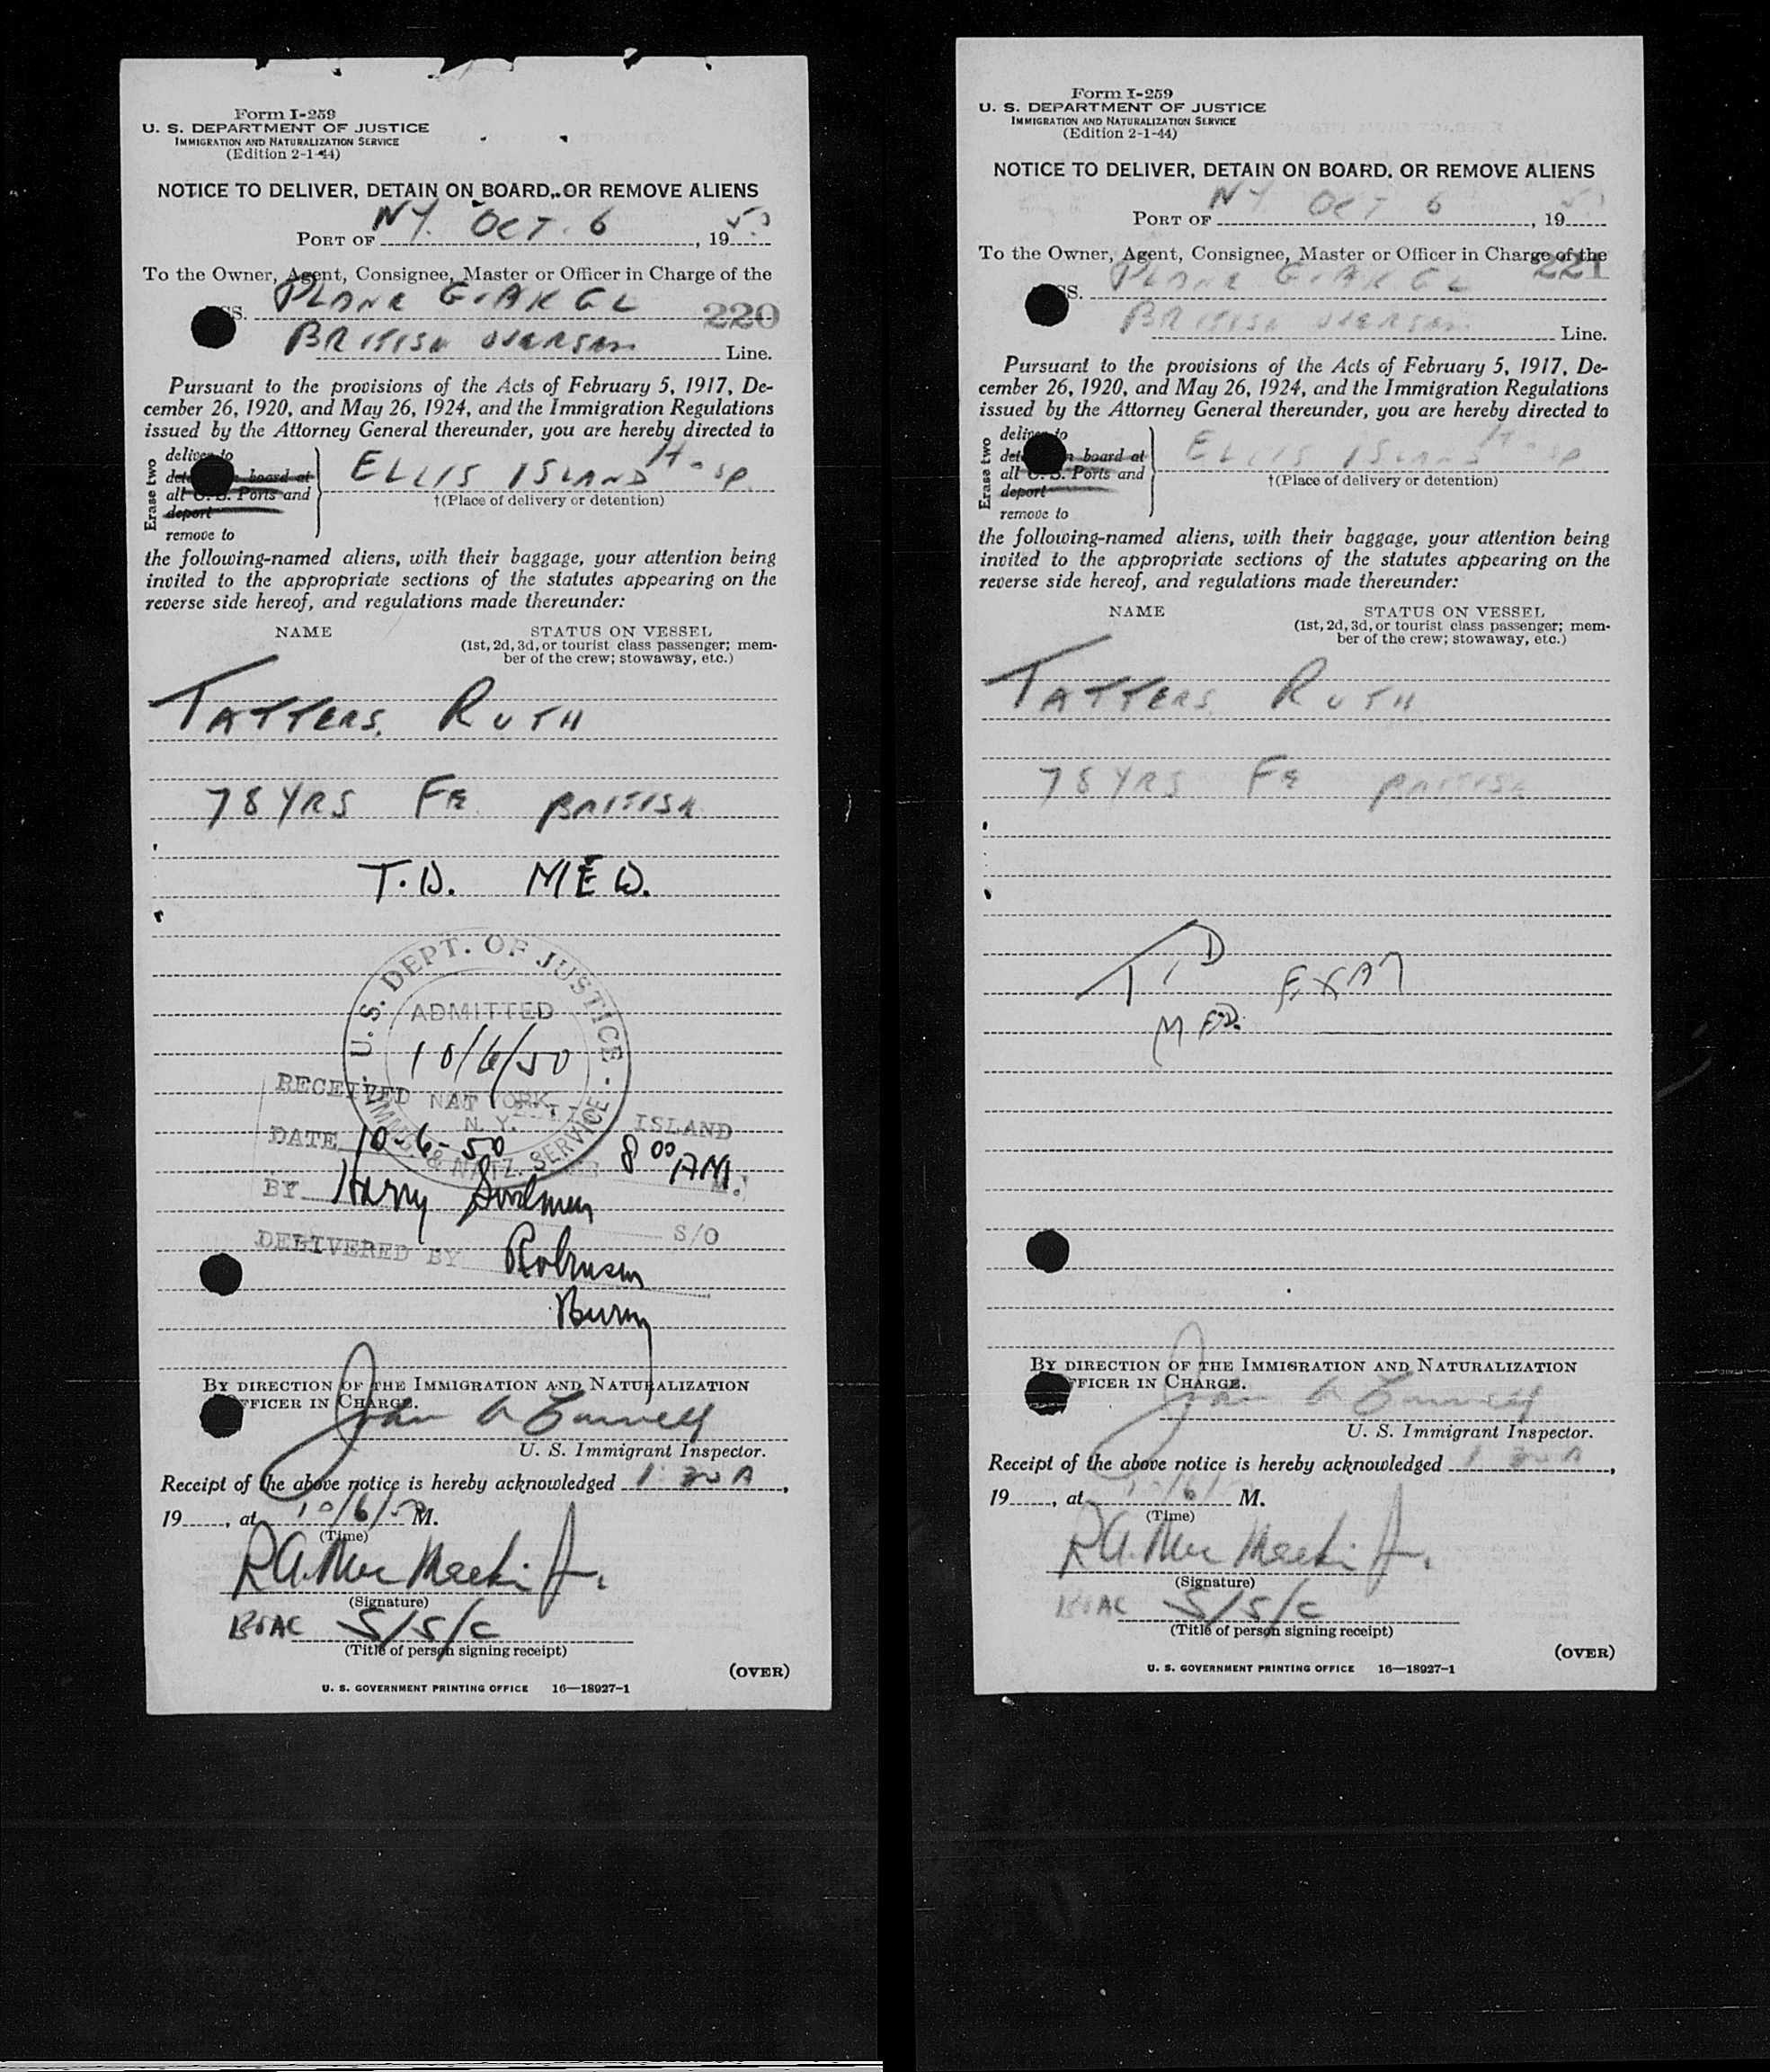 Form I-259
U. S. DEPARTMENT OF JUSTICE
IMMIGRATION AND NATURALIZATION SERVICE
(Edition 2-1-44)
NOTICE TO DELIVER, DETAIN ON BOARD, OR REMOVE ALIENS
PORT OF NY. OCT. 6, 1950
To the Owner, Agent, Consignee, Master or Officer in Charge of the
SS. PLANE G-AKGL 220
BRITISH OVERSEAS Line.
Pursuant to the provisions of the Acts of February 5, 1917, De-
cember 26, 1920, and May 26, 1924, and the Immigration Regulations
issued by the Attorney General thereunder, you are hereby directed to
Erase two
deliver to
board at
all U. S. Ports and
deport
remove to
ELLIS ISLAND Hosp
†(Place of delivery or detention)
the following-named aliens, with their baggage, your attention being
invited to the appropriate sections of the statutes appearing on the
reverse side hereof, and regulations made thereunder:
NAME STATUS ON VESSEL
(1st, 2d, 3d, or tourist class passenger; mem-
ber of the crew; stowaway, etc.)
TATTERS, RUTH
78 YRS FE BRITISH
T.D. MED.
U.S. DEPT. OF JUSTICE
ADMITTED
10/6/50
NEW YORK,
N. Y.
IMMIG. & NATZ. SERVICE
RECEIVED AT ELLIS ISLAND
DATE 10-6-50 8 00 AM. M.
BY Harry
S/O
DELIVERED BY Robinson
BY DIRECTION OF THE IMMIGRATION AND NATURALIZATION
OFFICER IN CHARGE.
John
U. S. Immigrant Inspector.
Receipt of the above notice is hereby acknowledged 1 30 A,
19, at 10/6/50 M.
(Time)
(Signature)
BOAC S/S/C
(Title of person signing receipt)
(OVER)
U. S. GOVERNMENT PRINTING OFFICE 16—18927-1
Form I-259
U. S. DEPARTMENT OF JUSTICE
IMMIGRATION AND NATURALIZATION SERVICE
(Edition 2-1-44)
NOTICE TO DELIVER, DETAIN ON BOARD, OR REMOVE ALIENS
PORT OF NY OCT 6, 1950
To the Owner, Agent, Consignee, Master or Officer in Charge of the
221
SS. PLANE G-AKGL
BRITISH OVERSEAS Line.
Pursuant to the provisions of the Acts of February 5, 1917, De-
cember 26, 1920, and May 26, 1924, and the Immigration Regulations
issued by the Attorney General thereunder, you are hereby directed to
Erase two
deliver to
board at
all U. S. Ports and
deport
remove to
ELLIS ISLAND Hosp
†(Place of delivery or detention)
the following-named aliens, with their baggage, your attention being
invited to the appropriate sections of the statutes appearing on the
reverse side hereof, and regulations made thereunder:
NAME STATUS ON VESSEL
(1st, 2d, 3d, or tourist class passenger; mem-
ber of the crew; stowaway, etc.)
TATTERS, RUTH
78 YRS FE BRITISH
T.D
MED. EXAM
BY DIRECTION OF THE IMMIGRATION AND NATURALIZATION
OFFICER IN CHARGE.
John
U. S. Immigrant Inspector.
Receipt of the above notice is hereby acknowledged 1 30 A,
19, at 10/6/ M.
(Time)
(Signature)
BOAC S/S/C
(Title of person signing receipt)
(OVER)
U. S. GOVERNMENT PRINTING OFFICE 16—18927-1